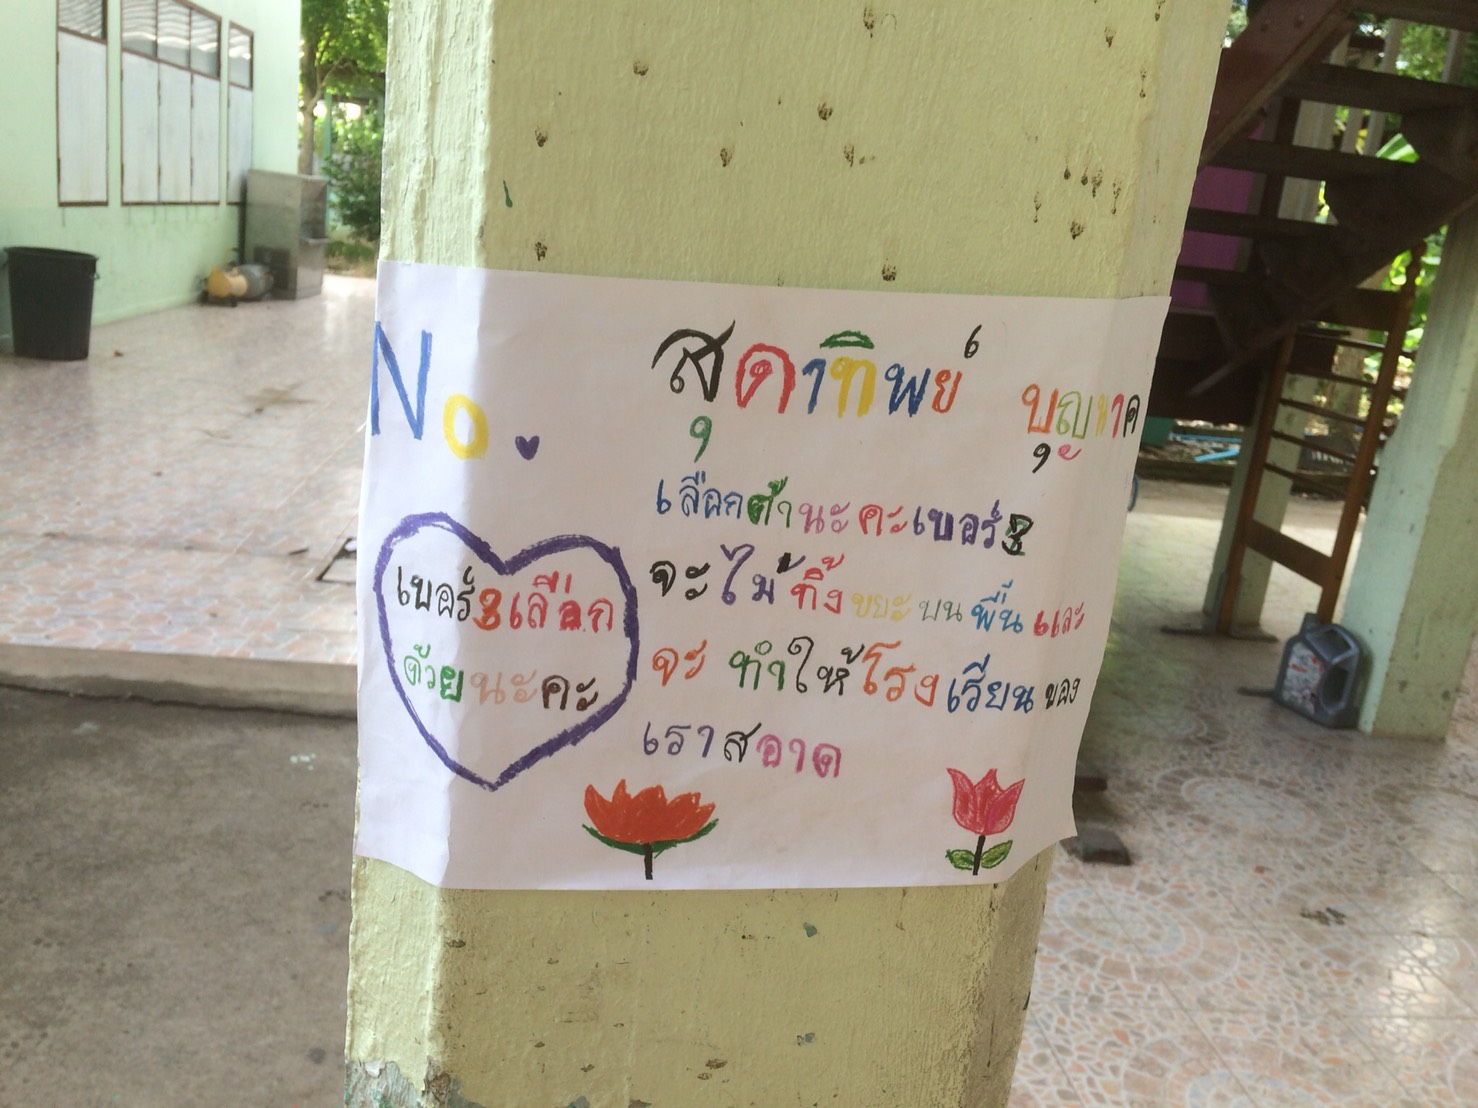 No.
สุดาทิพย์ บุญ
เลือกด้านะคะเบอร์3
จะไม่ทิ้งขยะบนพื้นและ
จะทำให้โรงเรียนของ
เราสอาด
เบอร์3เลือก
ด้วยนะคะ